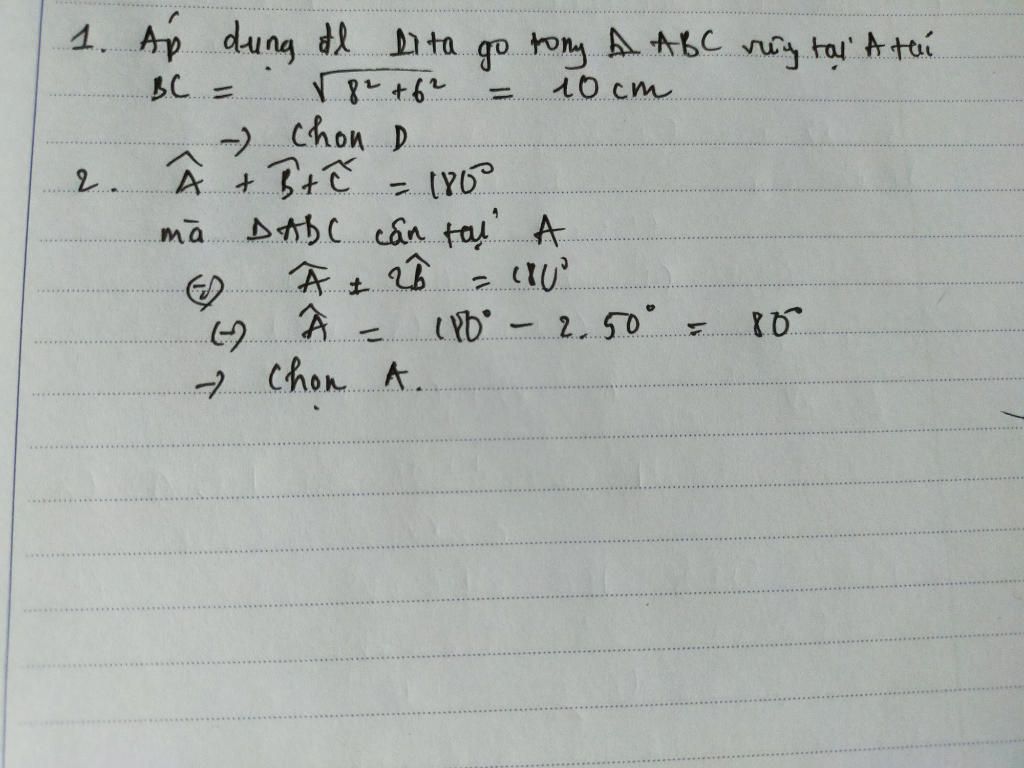 1. Áp dụng đl Pi ta go trong Δ ABC vuông tại A ta có
BC = √8²+6² = 10 cm
→ Chọn D
2. Â + B̂ + Ĉ = 180°
mà ΔABC cân tại A
⇔ Â + 2B̂ = 180°
⇔ Â = 180° - 2.50° = 80°
→ Chọn A.